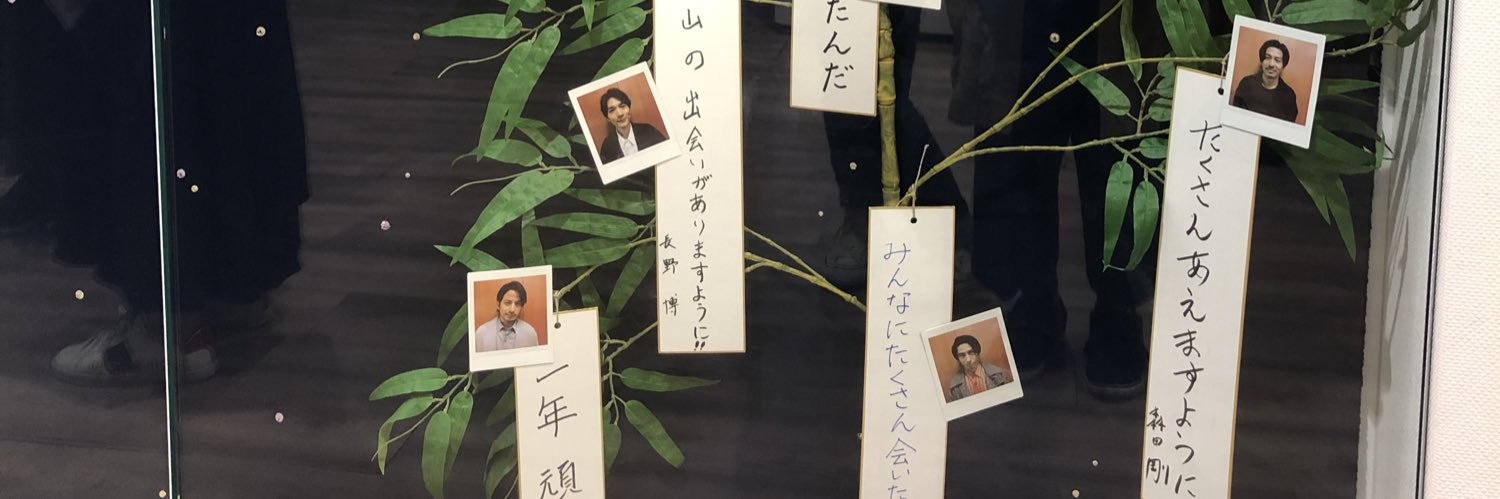 たくさんあえますように
森田剛
みんなにたくさん会いた
たんだ
山の出会いがありますように!!
長野 博
一年頑